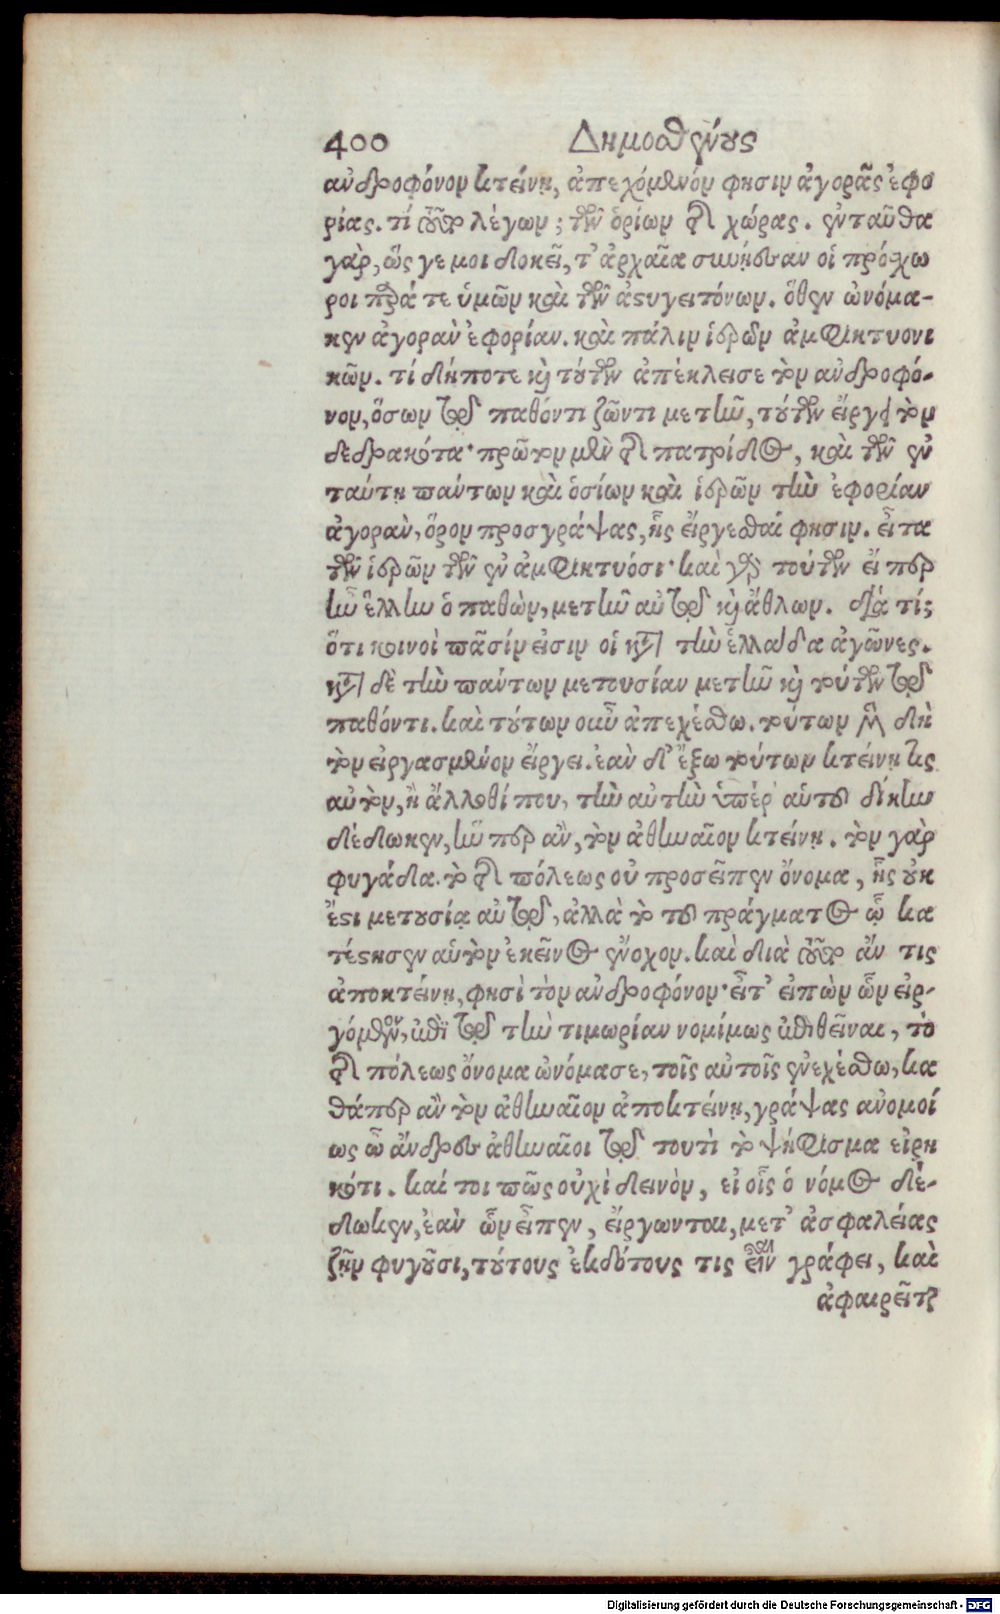 400 Δημοσθένους
ἀνδροφόνον κτείνῃ, ἀπεχόμενόν φησιν ἀγορᾶς ἐφο
ρίας. τί τοῦτο λέγων; τῶν ὁρίων τῆς χώρας. ἐνταῦθα
γὰρ, ὥς γε μοι δοκεῖ, τ' ἀρχαῖα συνῄεσαν οἱ πρόσχω
ροι παρά τε ὑμῶν καὶ τῶν ἀστυγειτόνων. ὅθεν ὠνόμα-
κεν ἀγορὰν ἐφορίαν. καὶ πάλιν ἱερῶν ἀμφικτυονι
κῶν. τί δήποτε καὶ τούτων ἀπέκλεισε τὸν ἀνδροφό-
νον, ὅσων τῷ παθόντι ζῶντι μετῆν, τούτων εἴργει τὸν
δεδρακότα· πρῶτον μὲν τῆς πατρίδος, καὶ τῶν ἐν
ταύτῃ πάντων καὶ ὁσίων καὶ ἱερῶν τὴν ἐφορίαν
ἀγορὰν, ὅρον προσγράψας, ἧς εἴργεσθαί φησιν. εἶτα
τῶν ἱερῶν τῶν ἐν ἀμφικτυόσι· καὶ γὰρ τούτων εἴπερ
ἦν ἕλλην ὁ παθὼν, μετῆν αὐτῷ καὶ ἄθλων. διὰ τίς
ὅτι κοινοὶ πᾶσίν εἰσιν οἱ κατὰ τὴν ἑλλάδα ἀγῶνες.
κατὰ δὲ τὴν πάντων μετουσίαν μετῆν καὶ τούτων τῷ
παθόντι. καὶ τούτων οὖν ἀπεχέσθω. τούτων μὲν δὴ
τὸν εἰργασμένον εἴργει. ἐὰν δ' ἔξω τούτων κτείνῃ τις
αὐτὸν, ἢ ἄλλοθί που, τὴν αὐτὴν ὑπὲρ αὐτοῦ δίκην
δέδωκεν, ἥνπερ ἂν, τὸν ἀθηναῖον κτείνῃ. τὸν γὰρ
φυγάδα. τὸ τῆς πόλεως οὐ προσεῖπεν ὄνομα, ἧς οὐκ
ἔστι μετουσία αὐτῷ, ἀλλὰ τὸ τοῦ πράγματος ᾧ κα
τέστησεν αὑτὸν ἐκεῖνος ἔνοχον. καὶ διὰ τοῦτο ἄν τις
ἀποκτείνῃ, φησὶ τὸν ἀνδροφόνον· εἶτ' εἰπὼν ὧν εἰρ-
γόμενον, ἐπὶ τῷ τὴν τιμωρίαν νομίμως ἐπιθεῖναι, τὸ
τῆς πόλεως ὄνομα ὠνόμασε, τοῖς αὐτοῖς ἐνεχέσθω, κα
θάπερ ἂν τὸν ἀθηναῖον ἀποκτείνῃ, γράψας ἀνομοί
ως ὦ ἄνδρες ἀθηναῖοι τῷ τουτὶ τὸ ψήφισμα εἰρη
κότι. καί τοι πῶς οὐχὶ δεινὸν, εἰ οἷς ὁ νόμος δέ-
δωκεν, ἐὰν ὧν εἶπεν, εἴργωνται, μετ' ἀσφαλείας
ζῆν φυγοῦσι, τούτους ἐκδότους τις εἶναι γράφει, καὶ
ἀφαιρεῖται
Digitalisierung gefördert durch die Deutsche Forschungsgemeinschaft - DFG